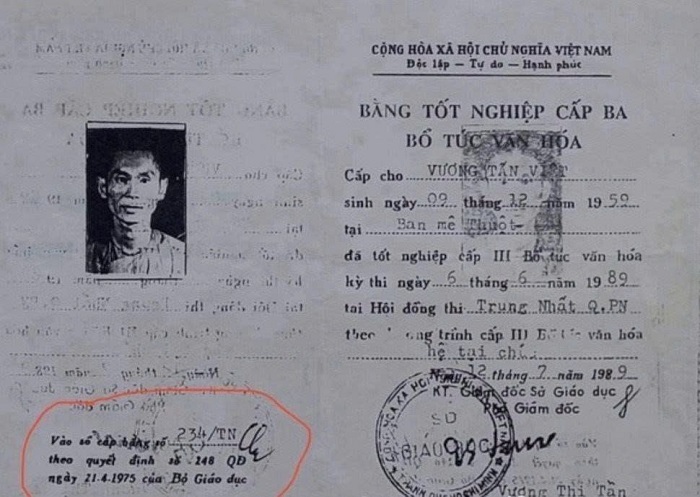 CỘNG HÒA XÃ HỘI CHỦ NGHĨA VIỆT NAM
Độc lập — Tự do — Hạnh phúc
BẰNG TỐT NGHIỆP CẤP BA
BỔ TÚC VĂN HÓA
Cấp cho VƯƠNG TẤN VIỆT
sinh ngày 09 tháng 12 năm 1959
tại Ban mê Thuột
đã tốt nghiệp cấp III Bổ túc văn hóa
kỳ thi ngày 6 tháng 6 năm 1989
tại Hội đồng thi Trung Nhất Q.PN
theo chương trình cấp III Bổ túc văn hóa
hệ tại chức
12 tháng 7 năm 1989
KT. Giám đốc Sở Giáo dục
Phó Giám đốc
SỞ
GIÁO DỤC
Vương Thị Tần
Vào sổ cấp bằng số 234/TN
theo quyết định số 248 QĐ
ngày 21.4.1975 của Bộ Giáo dục